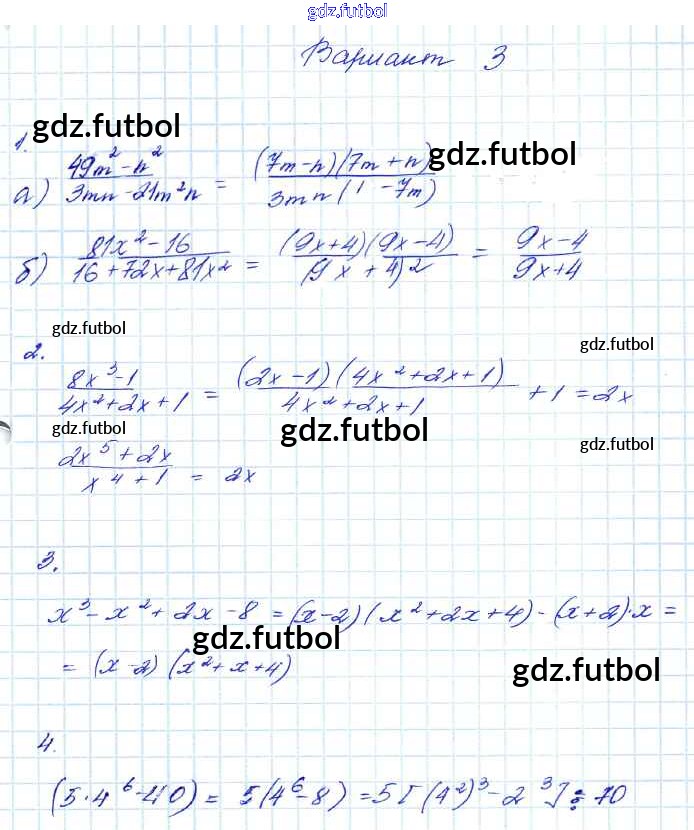 gdz.futbol
Вариант 3
1.
gdz.futbol
gdz.futbol
а) (49m² - n²)/(3mn - 21m²n) = ((7m - n)(7m + n))/(3mn(1 - 7m))
б) (81x² - 16)/(16 + 72x + 81x²) = ((9x + 4)(9x - 4))/((9x + 4)²) = (9x - 4)/(9x + 4)
gdz.futbol
gdz.futbol
2.
(8x³ - 1)/(4x² + 2x + 1) = ((2x - 1)(4x² + 2x + 1))/(4x² + 2x + 1) + 1 = 2x
gdz.futbol
gdz.futbol
gdz.futbol
(2x⁵ + 2x)/(x⁴ + 1) = 2x
3.
x³ - x² + 2x - 8 = (x - 2)(x² + 2x + 4) - (x + 2)·x =
gdz.futbol
= (x - 2)(x² + x + 4)
gdz.futbol
4.
(5·4⁶ - 40) = 5(4⁶ - 8) = 5[(4²)³ - 2³] ⋮ 70